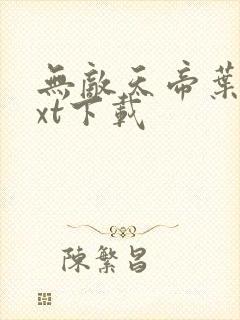 無敵天帝葉
xt下載
陳繁昌